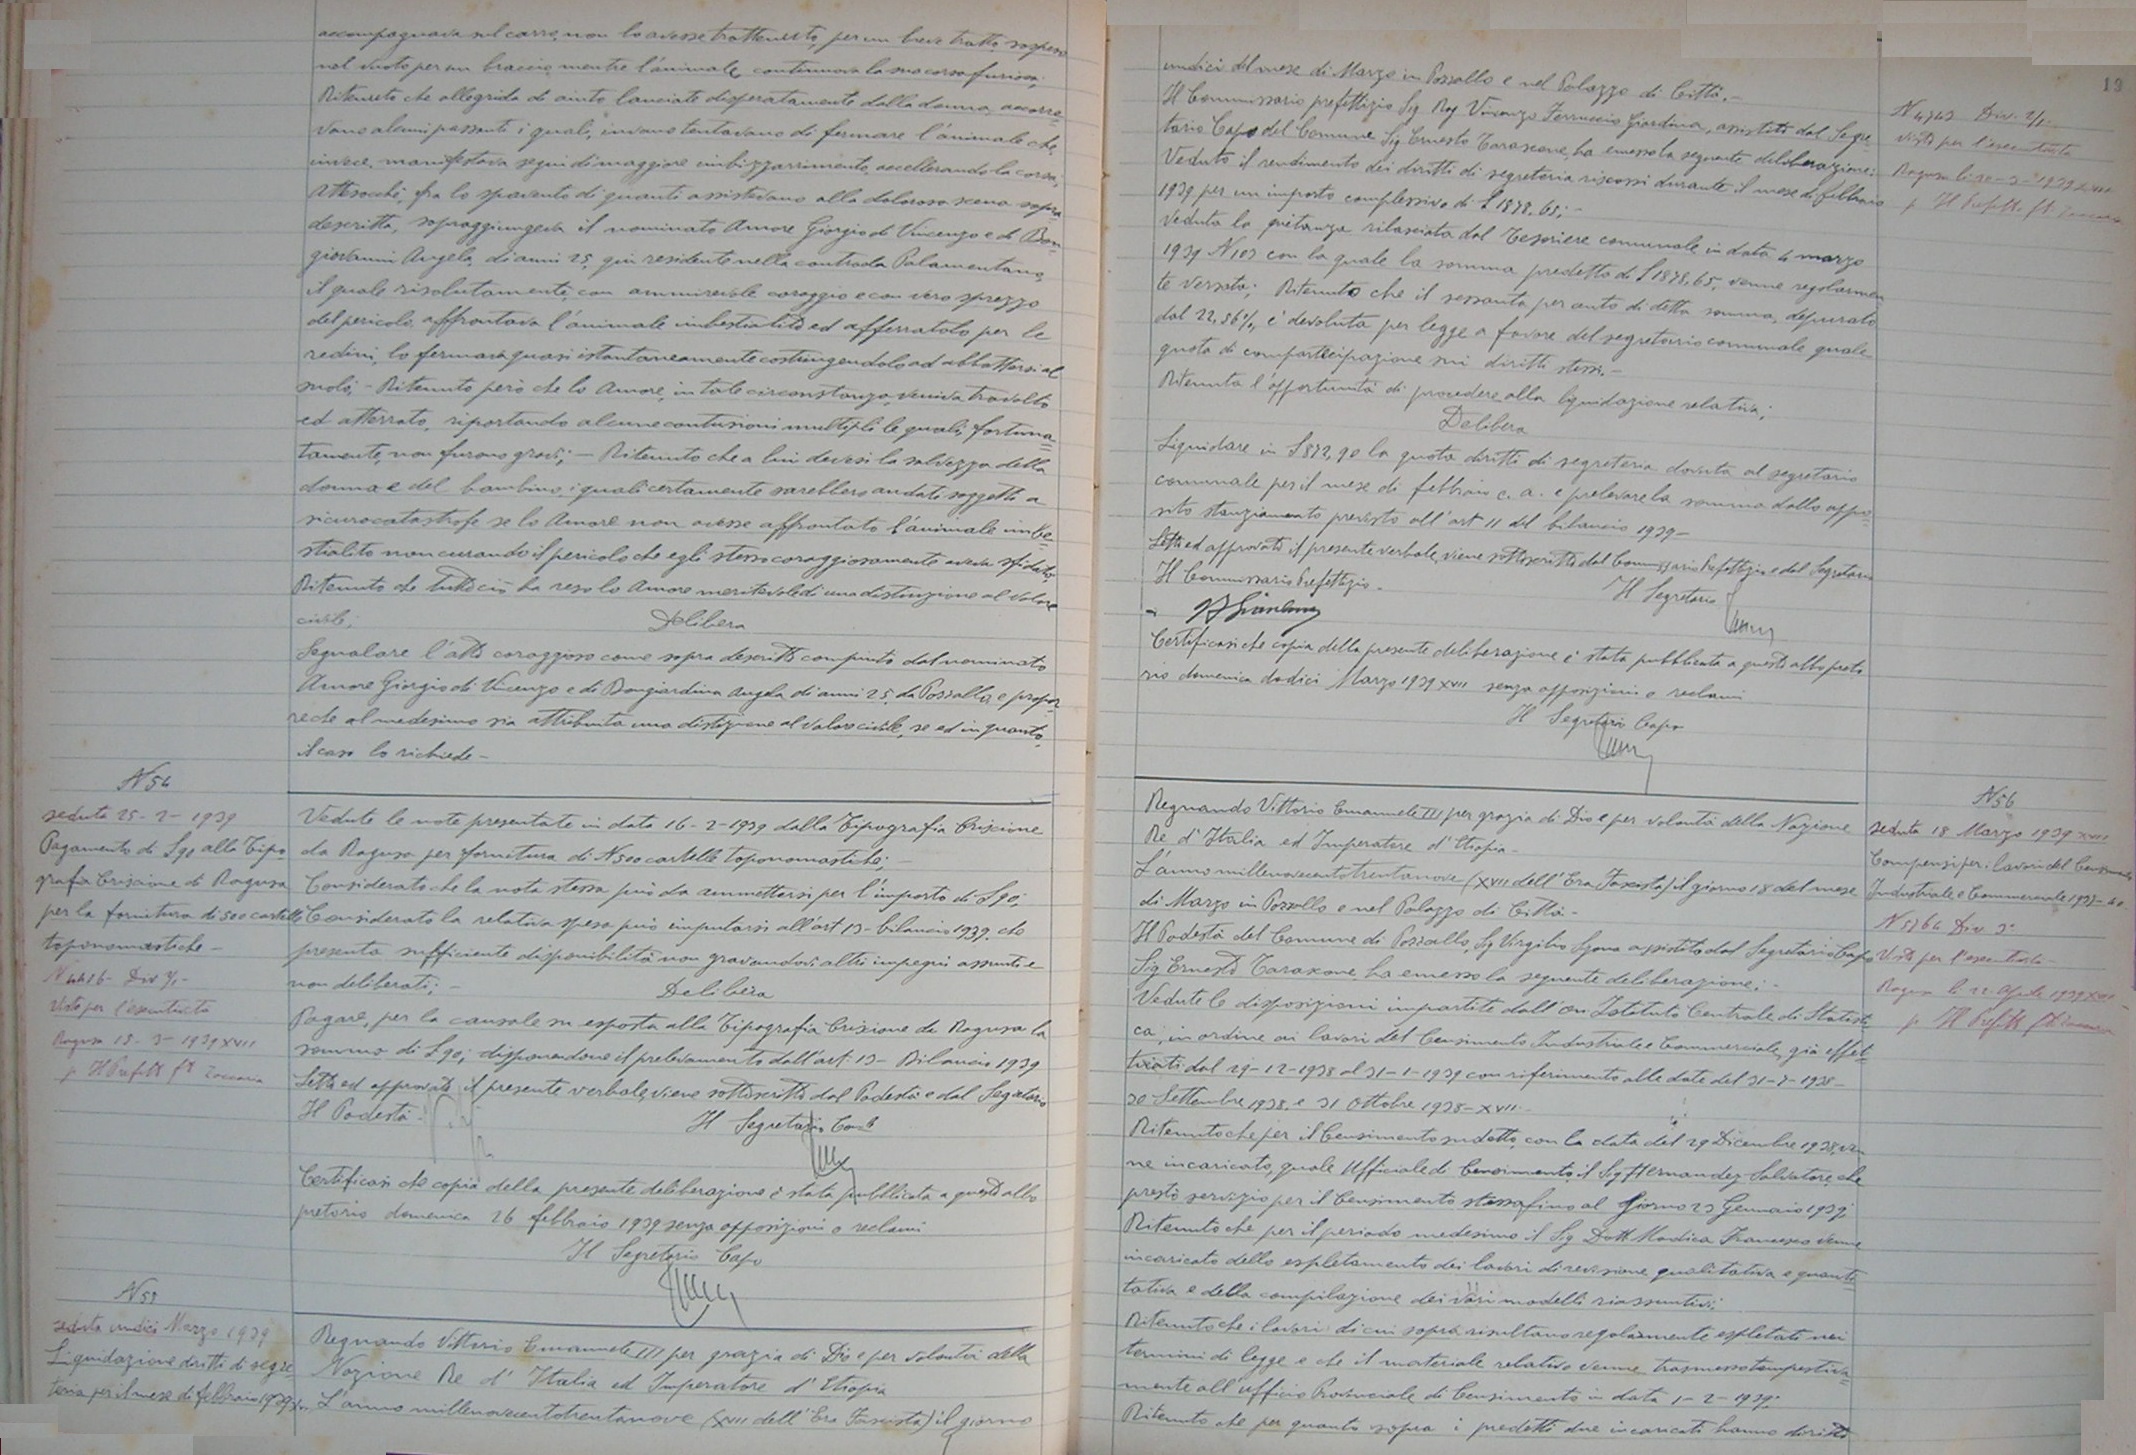 accompagnava sul carro, non lo avesse trattenuto, per un breve tratto, sospeso
nel vuoto per un braccio, mentre l'animale continuava la sua corsa furiosa;
Ritenuto che alle grida di aiuto lanciate disperatamente dalla donna, accorre=
vano alcuni passanti i quali, invano tentavano di fermare l'animale che,
invece, manifestava segni di maggiore imbizzarrimento, accellerando la corsa;
Attesocchè, fra lo spavento di quanti assistevano alla dolorosa scena sopra
descritta, sopraggiungeva il nominato Amore Giorgio di Vincenzo e di Bon=
giovanni Angela, di anni 25, qui residente nella contrada Palamentano,
il quale risolutamente, con ammirevole coraggio e con vero sprezzo
del pericolo, affrontava l'animale imbestialito ed afferratolo per le
redini, lo fermava quasi istantaneamente costringendolo ad abbattersi al
suolo; - Ritenuto però che lo Amore, in tale circostanza, veniva travolto
ed atterrato, riportando alcune contusioni multipli le quali, fortuna=
tamente, non furono gravi; - Ritenuto che a lui devesi la salvezza della
donna e del bambino i quali certamente sarebbero andati soggetti a
sicura catastrofe se lo Amore non avesse affrontato l'animale imbe=
stialito non curando il pericolo che egli stesso coraggiosamente aveva sfidato;
Ritenuto che tutto ciò ha reso lo Amore meritevole di una distinzione al valore
civile;
Delibera
Segnalare l'atto coraggioso come sopra descritto compiuto dal nominato
Amore Giorgio di Vincenzo e di Bongiardina Angela di anni 25, da Pozzallo, e propor=
re che al medesimo sia attribuita una distinzione al valore civile, se ed in quanto,
il caso lo richiede -
N 54
seduta 25-2-1939
Pagamento di £90 alla Tipo
grafia Criscione di Ragusa
per la fornitura di 500 cartelle
toponomastiche -
Visto per l'esecutività
Ragusa 13-3-1939 XVII
p Il Prefetto ft Zaccaria
Vedute le note presentate in data 16-2-1939 dalla Tipografia Criscione
da Ragusa per fornitura di N 500 cartelle toponomastiche; -
Considerato che la nota stessa può da ammettersi per l'importo di £90;
Considerato la relativa spesa può imputarsi all'art 13 - bilancio 1939, che
presenta sufficiente disponibilità non gravandovi altri impegni assunti e
non deliberati; -
Delibera
Pagare, per la causale su esposta alla Tipografia Criscione da Ragusa la
somma di £90; disponendone il prelevamento dall'art: 13 - Bilancio 1939
Letto ed approvato il presente verbale, viene sottoscritto dal Podestà e dal Segretario
Il Podestà
Il Segretario
Certificasi che copia della presente deliberazione è stata pubblicata a questo albo
pretorio domenica 26 febbraio 1939 senza opposizioni o reclami
Il Segretario Capo
N 55
seduta undici Marzo 1939
Liquidazione diritti di segre
teria per il mese di febbraio 1939
Regnando Vittorio Emanuele III per grazia di Dio e per volontà della
Nazione Re d'Italia ed Imperatore d'Etiopia
L'anno millenovecentotrentanove (XVII dell'Era Fascista) il giorno
19
undici del mese di Marzo in Pozzallo e nel Palazzo di Città. -
Il Commissario prefettizio Sig Rag Vincenzo Ferruccio Giardina, assistito dal Segre=
tario Capo del Comune Sig Ernesto Tarascone, ha emesso la seguente deliberazione:
Veduto il rendimento dei diritti di segreteria riscossi durante il mese di febbraio
1939 per un importo complessivo di £1878,65; -
Veduta la quietanza rilasciata dal Tesoriere comunale in data 4 marzo
1939 N 103 con la quale la somma predetta di £1878,65, venne regolarmen
te versata; Ritenuto che il sessanta per cento di detta somma, depurato
dal 22,56%, è devoluta per legge a favore del segretario comunale quale
quota di compartecipazione sui diritti stessi. -
Ritenuta l'opportunità di procedere alla liquidazione relativa;
Delibera
Liquidare in £872,90 la quota diritti di segreteria dovuta al segretario
comunale per il mese di febbraio c. a. e prelevare la somma dallo appo=
sito stanziamento previsto all'art 11 del bilancio 1939 -
Letto ed approvato il presente verbale, viene sottoscritto dal Commissario Prefettizio e dal Segretario
Il Commissario Prefettizio -
Il Segretario
Certificasi che copia della presente deliberazione è stata pubblicata a questo albo preto
rio domenica dodici Marzo 1939 XVII senza opposizioni o reclami
Il Segretario Capo
N 4743 Div. 2/1
Visto per l'esecutività
p Il Prefetto ft Zaccaria
Regnando Vittorio Emanuele III per grazia di Dio e per volontà della Nazione
Re d'Italia ed Imperatore d'Etiopia -
L'anno millenovecentotrentanove (XVII dell'Era Fascista) il giorno 18 del mese
di Marzo in Pozzallo e nel Palazzo di Città -
Il Podestà del Comune di Pozzallo, Sig Virgilio Sgona assistito dal Segretario Capo
Sig Ernesto Tarascone, ha emesso la seguente deliberazione; -
Vedute le disposizioni impartite dall'On Istituto Centrale di Statisti
ca, in ordine ai lavori del Censimento Industriale e Commerciale, già effet=
tuati dal 29-12-1938 al 31-1-1939 con riferimento alle date del 31-7-1938 -
30 Settembre 1938 e 31 Ottobre 1938 - XVII -
Ritenuto che per il Censimento sudetto, con la data del 29 Dicembre 1938, ven
ne incaricato, quale Ufficiale di Censimento, il Sig Hernandez Salvatore, che
prestò servizio per il Censimento stesso fino al giorno 23 Gennaio 1939;
Ritenuto che per il periodo medesimo il Sig Dott Modica Francesco venne
incaricato dello espletamento dei lavori di revisione qualitativa e quanti
tativa e della compilazione dei vari modelli riassuntivi;
Ritenuto che i lavori di cui sopra, risultano regolarmente espletati nei
termini di legge e che il materiale relativo venne trasmesso tempestiva=
mente all'ufficio Provinciale di Censimento in data 1-2-1939;
Ritenuto che per quanto sopra i predetti due incaricati hanno diritto
N 56
seduta 18 Marzo 1939 XVII
Compensi per i lavori del Censimento
Industriale e Commerciale
N 5764 Div 2ª
Visto per l'esecutività
Ragusa li 22 Aprile 1939 XVII
p Il Prefetto ft Zaccaria